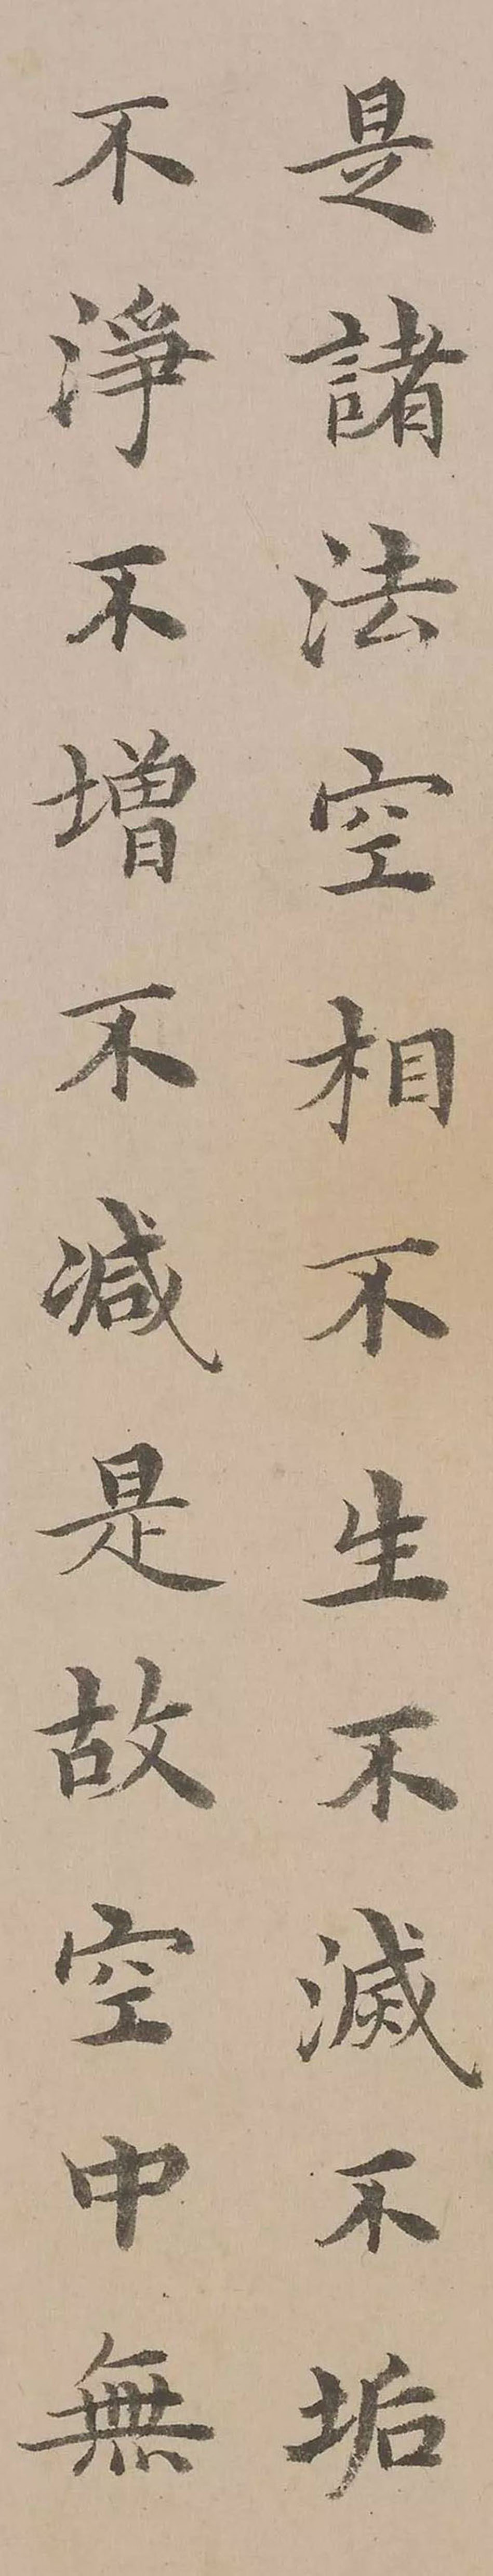 是諸法空相不生不滅不垢
不淨不增不減是故空中無